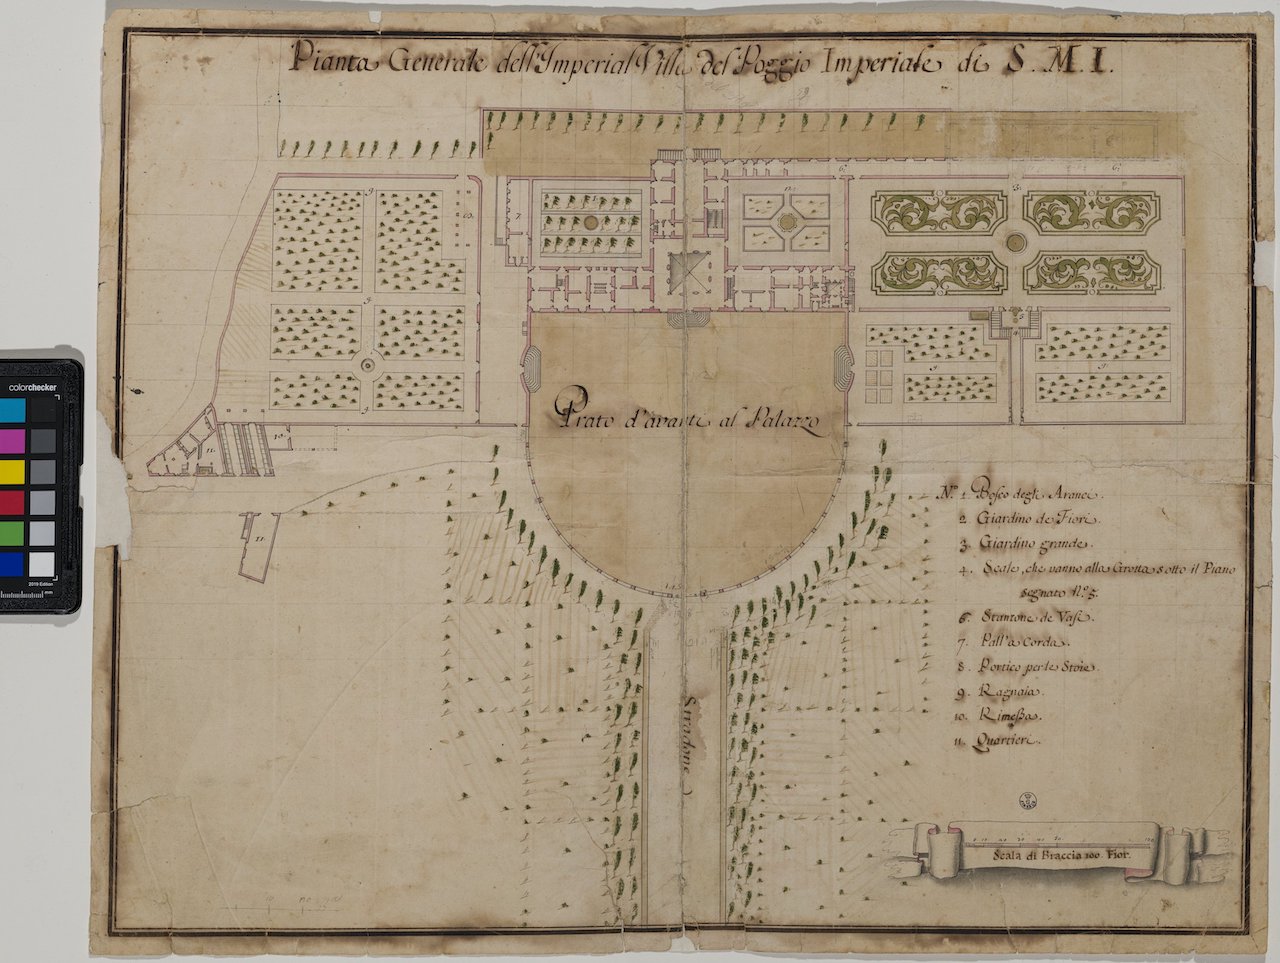 Pianta Generale dell'Imperial Villa del Poggio Imperiale di S. M. I.
Prato d'avanti al Palazzo
Stradone
N.º 1. Bosco degli Aranci.
2. Giardino de Fiori.
3. Giardino grande.
4. Scale, che vanno alla Grotta sotto il Piano
segnato N.º 5.
6. Stanzone de Vasi.
7. Pall'a Corda.
8. Portico per le Stoie.
9. Ragnaia.
10. Rimessa.
11. Quartieri.
Scala di Braccia 100. Fior.
colorchecker
2019 Edition
mm